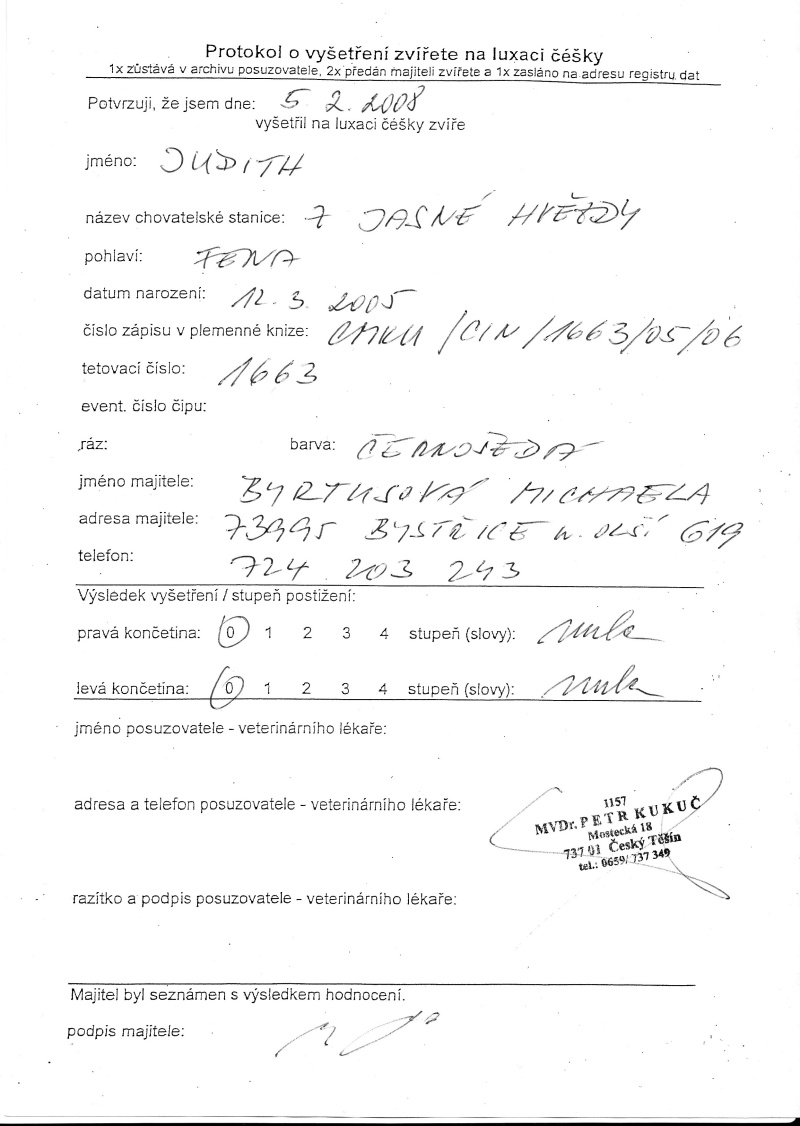 Protokol o vyšetření zvířete na luxaci čéšky
1x zůstává v archivu posuzovatele, 2x předán majiteli zvířete a 1x zasláno na adresu registru dat
Potvrzuji, že jsem dne: 5 2. 2008
vyšetřil na luxaci čéšky zvíře
jméno: JUDITH
název chovatelské stanice: Z JASNÉ HVĚZDY
pohlaví: FENA
datum narození: 12. 3. 2005
číslo zápisu v plemenné knize: CMKU /CIN /1663/05/06
tetovací číslo: 1663
event. číslo čipu:
ráz: barva: ČERNOŠEDÁ
jméno majitele: BYRTUSOVÁ MICHAELA
adresa majitele: 73995 BYSTŘICE n. OLŠÍ 619
telefon: 724 203 243
Výsledek vyšetření / stupeň postižení:
pravá končetina: 0 1 2 3 4 stupeň (slovy): nula
levá končetina: 0 1 2 3 4 stupeň (slovy): nula
jméno posuzovatele - veterinárního lékaře:
adresa a telefon posuzovatele - veterinárního lékaře:
1157
MVDr. PETR KUKUČ
Mostecká 18
737 01 Český Těšín
tel.: 0659/ 737 349
razítko a podpis posuzovatele - veterinárního lékaře:
Majitel byl seznámen s výsledkem hodnocení.
podpis majitele: